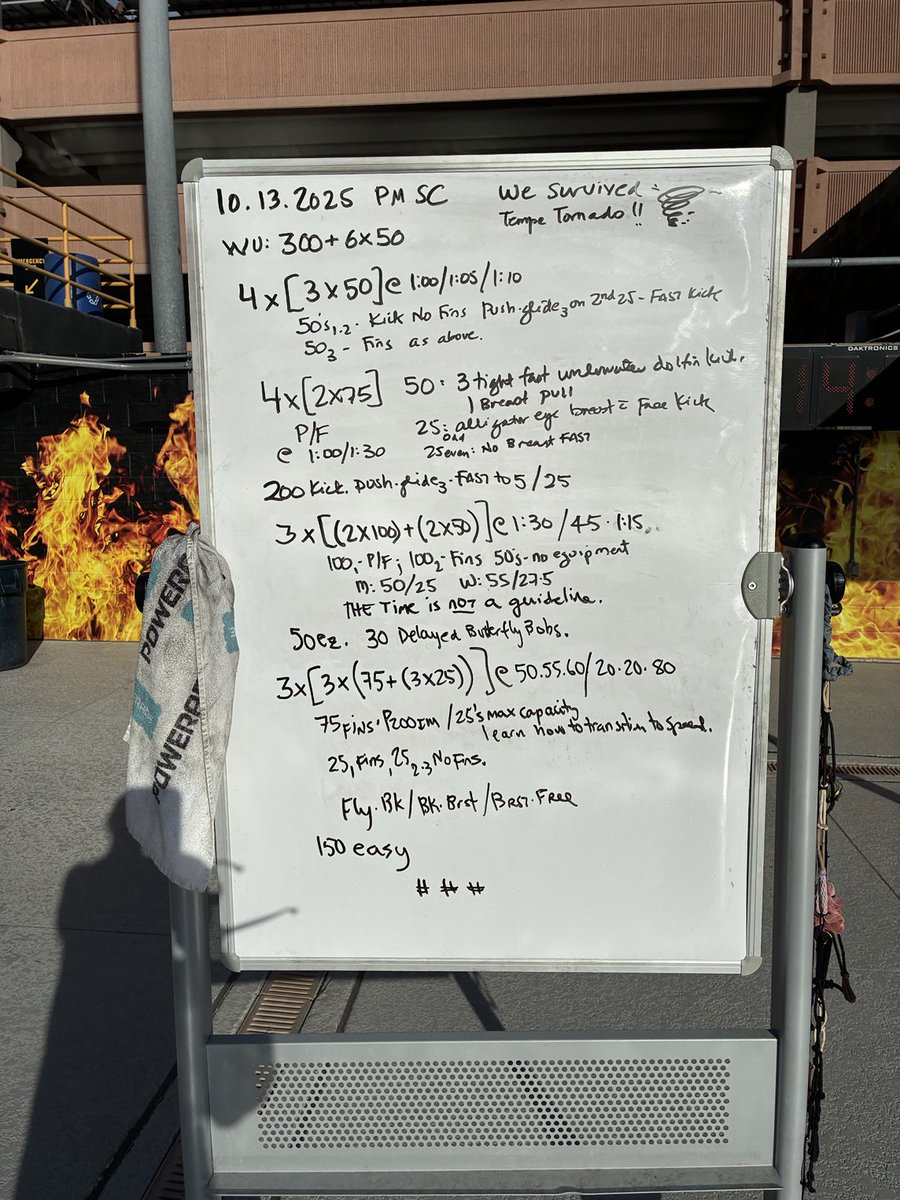 10.13.2025 PM SC
We Survived
Tempe Tornado !!
WU: 300 + 6x50
4x[3x50]@ 1:00/1:05/1:10
50's1,2 - Kick No Fins Push-glide3 on 2nd 25 - FAST Kick
503 - Fins as above.
4x[2x75] 50: 3 tight fast underwater dolfin kick,
1 Breast Pull
P/F 25: alligator eye breast c̄ Free Kick
odd
@ 1:00/1:30 25even: No Breast FAST
200 Kick. Push-glide3-FAST to 5/25
3x[(2x100)+(2x50)]@ 1:30/45·1:15
1001-P/F; 1002-Fins 50's-no equipment
M: 50/25 W: 55/27.5
THE Time is NOT a guideline.
50ez. 30 Delayed Butterfly Bobs.
3x[3x(75+(3x25))]@ 50.55.60/20.20.80
75 Fins·P200IM/25's max capacity
learn how to transition to speed.
251 Fins, 252-3 No Fins.
Fly·Bk/Bk·Brst/Brst·Free
150 easy
# # #
DAKTRONICS
14
POWERA
POWERA